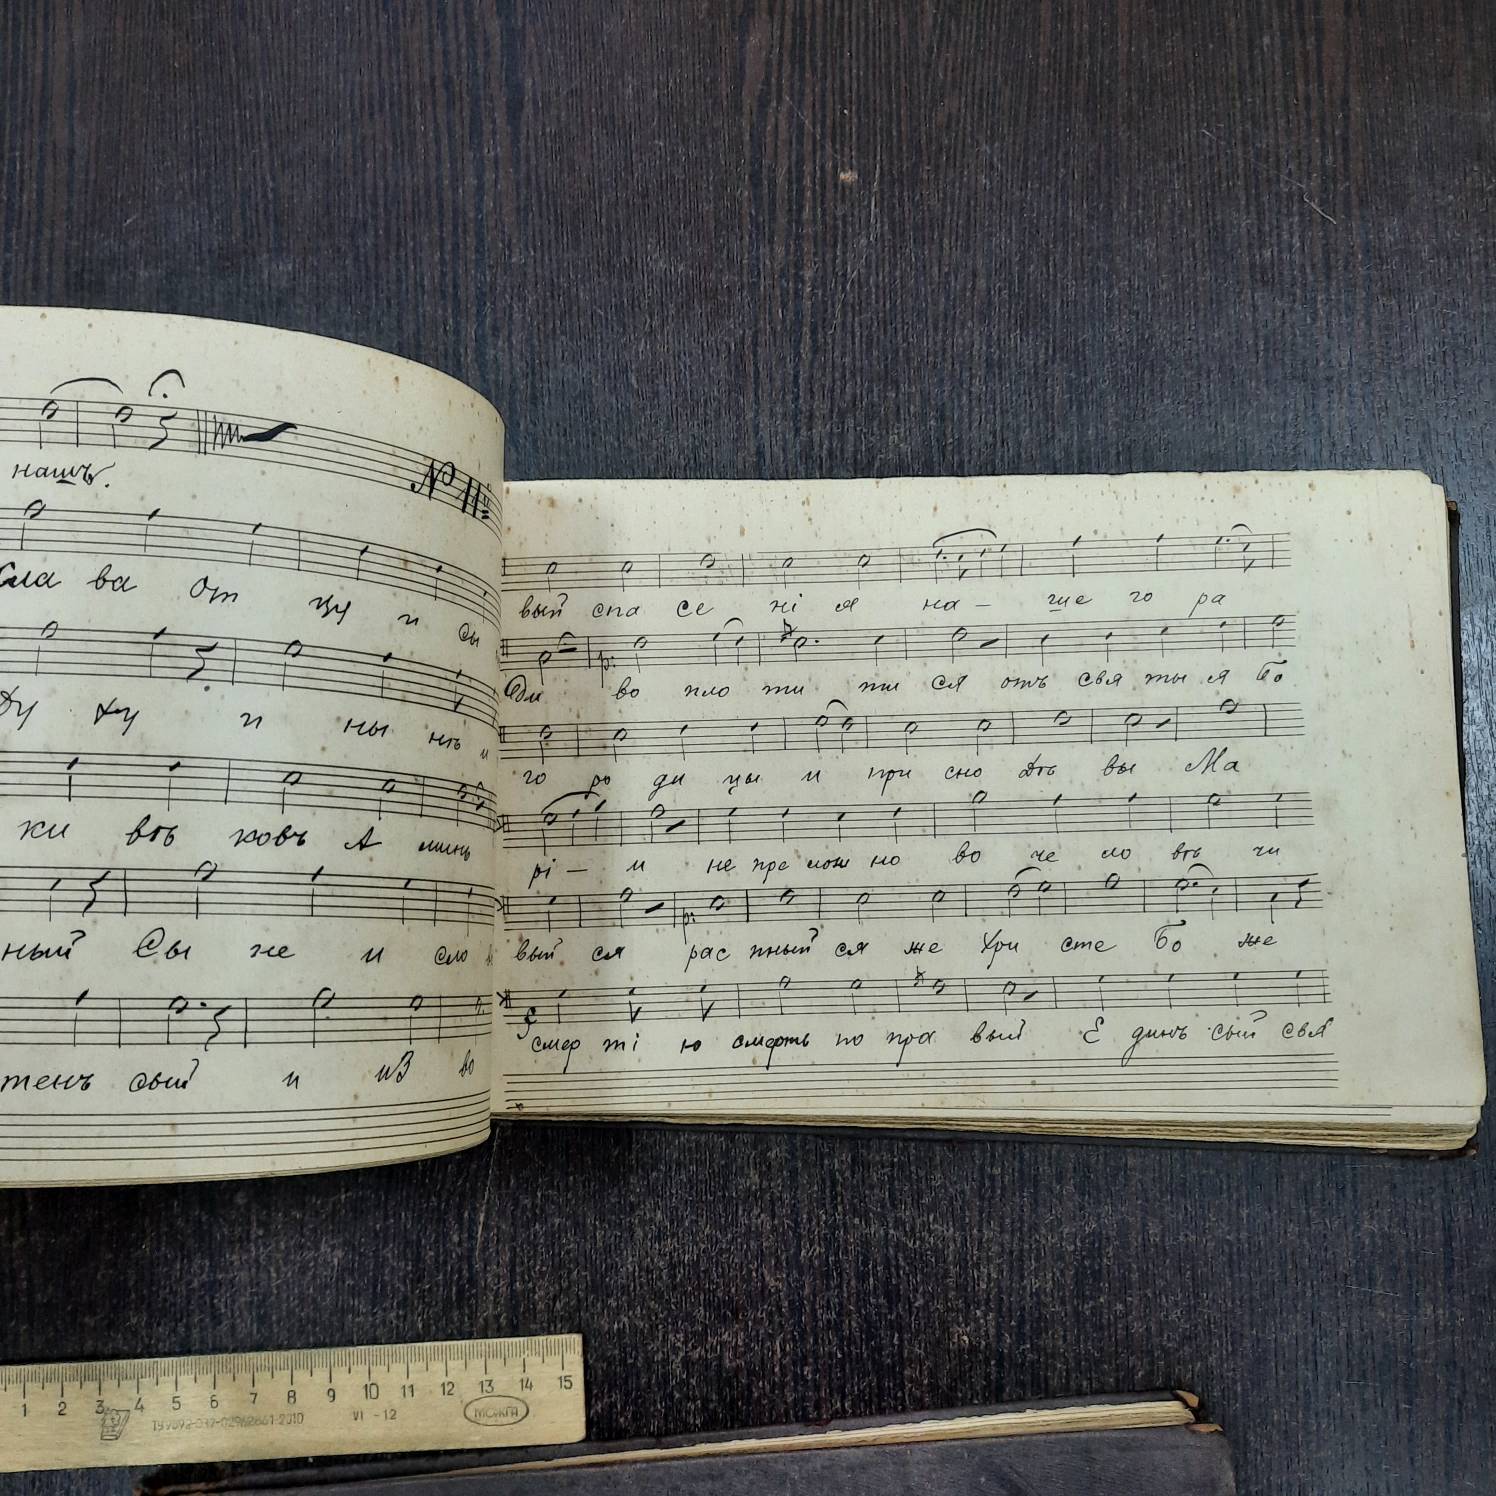 нашъ.
№ 11й
Сла ва От цу и Сы
Ду ху и ны нѣ и
ки вѣ ковъ А минь
ный Сы не и сло
тенъ сый и из во
вый спа се ні я на - ше го ра
Ди во пло ти ти ся отъ свя ты я Бо
го ро ди цы и при сно Дѣ вы Ма
рі - и не пре лож но во че ло вѣ чи
вый ся рас пный ся же Хри сте Бо же
смер ті ю смерть по пра вый Е динъ сый свя
1 2 3 4 5 6 7 8 9 10 11 12 13 14 15
VI - 12